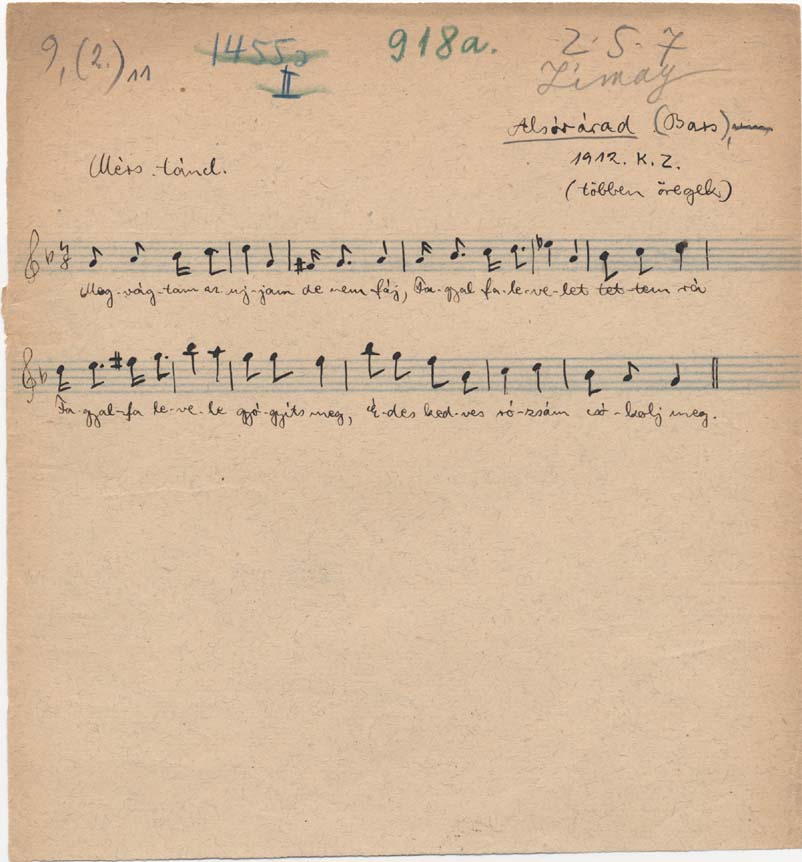 9,(2.)11 1455a 918a. 2·5·7
II Limay
Alsóvárad (Bars),
1912. K. Z.
Mérs. tánd. (többen öregek)
Meg-vág-tam az uj-jam de nem fáj, Fa-gyal fa-le-ve-let tet-tem rá
Fa-gyal-fa le-ve-le gyó-gyíts meg, É-des ked-ves ró-zsám csó-kolj meg.